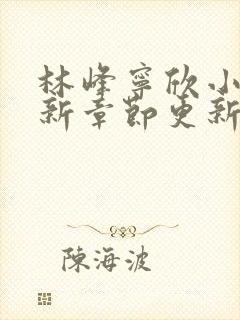 林峰寧欣小
新章節更新
陳海波